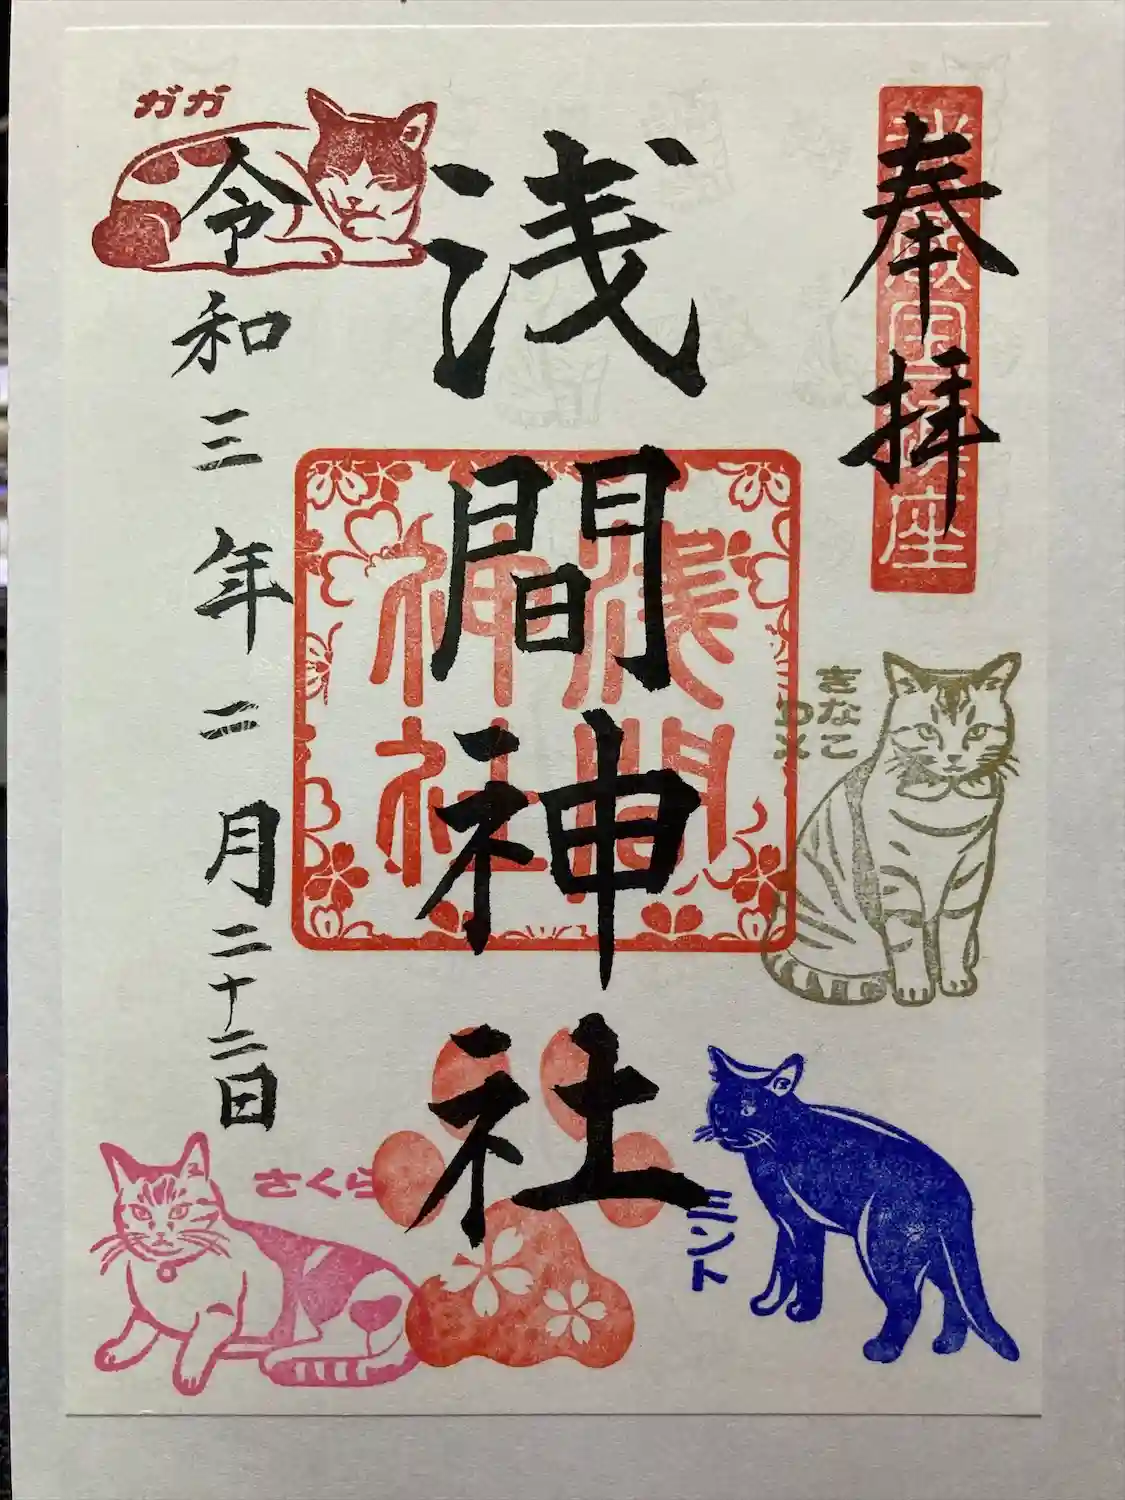 奉拝
武蔵国一橋座
浅間神社
浅間
神社
令和三年二月二十二日
ガガ
きなこ
さくら
ミント